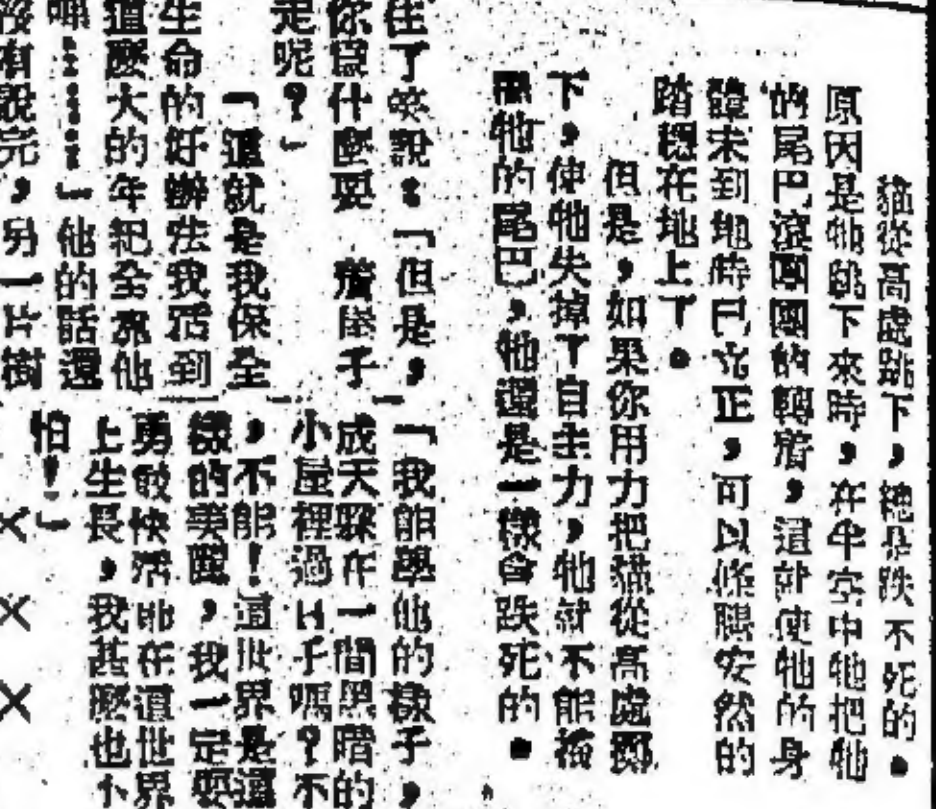 貓從高處跳下，總是跌不死的。
原因是牠跳下來時，在半空中牠把牠
的尾巴滾團團的轉着，這就使牠的身
體未到地時已克正，可以條腿安然的
踏穩在地上了。
但是，如果你用力把貓從高處擲
下，使牠失掉了自主力，牠就不能搖
牠的尾巴，牠還是一樣會跌死的。
住了笑說：「但是，
你為什麼要 着 手
走呢？」
「這就是我保全
生命的好辦法我活到
這麼大的年紀全靠他
……」他的話還
沒有說完，另一片樹
「我能學他的樣子，
成天躱在一間黑暗的
小屋裡過日子嗎？不
，不能！這世界是這
樣的美麗，我一定要
勇敢快活地在這世界
上生長，我甚麼也不
怕！」
×××